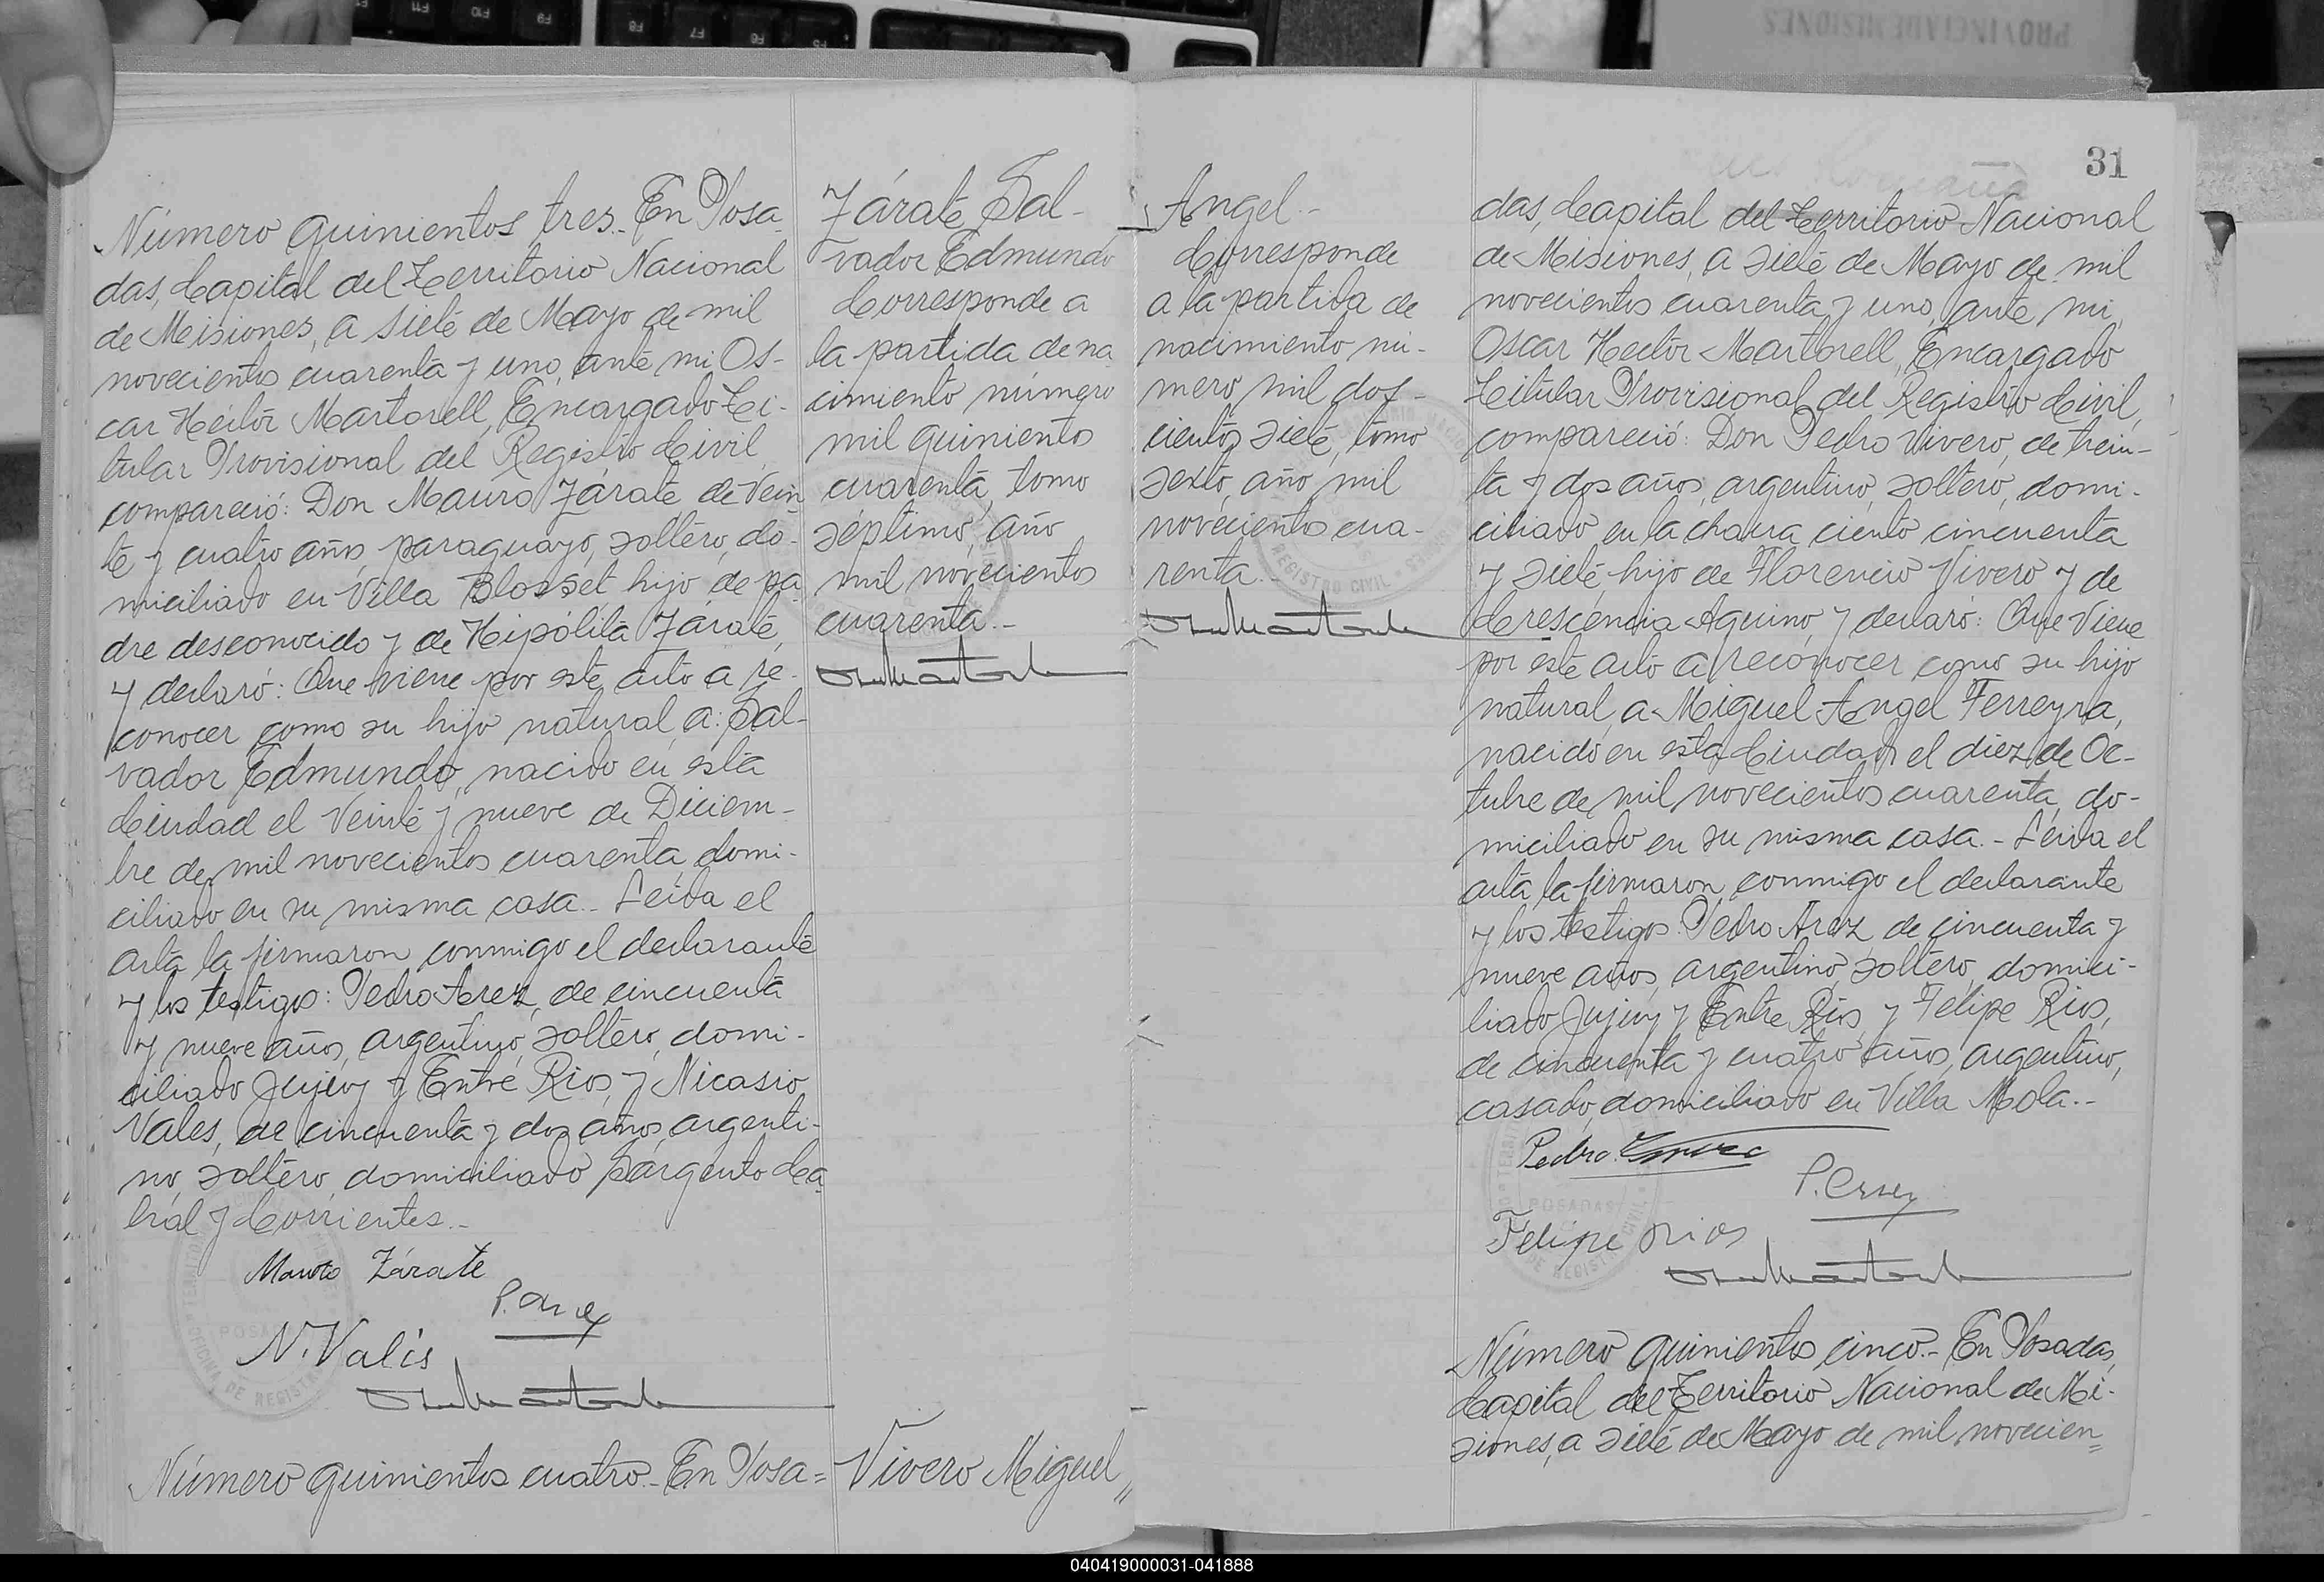 Número quinientos tres.- En Posa-
das, Capital del Territorio Nacional
de Misiones, a siete de Mayo de mil
novecientos cuarenta y uno, ante mi Os-
car Héctor Martorell, Encargado Ti-
tular Provisional del Registro Civil,
compareció: Don Mauro Zárate, de vein
te y cuatro años, paraguayo, soltero, do-
miciliado en Villa Blosset hijo de pa
dre desconocido y de Hipólita Zárate,
y declaró: Que viene por este acto a re-
conocer como su hijo natural, a: Sal-
vador Edmundo, nacido en esta
Ciudad el veinte y nueve de Diciem-
bre de mil novecientos cuarenta, domi-
ciliado en su misma casa.- Leida el
acta la firmaron conmigo el declarante
y los testigos: Pedro Arez, de cincuenta
y nueve años, argentino, soltero, domi-
ciliado Jujuy y Entre Rios, y Nicasio
Vales, de cincuenta y dos años, argenti-
no, soltero, domiciliado Sargento Ca
bral y Corrientes.-
Mauro Zárate
N. Valis
Número quinientos cuatro.- En Posa=
Zárate, Sal-
vador Edmundo
Corresponde a
la partida de na
cimiento número
mil quinientos
cuarenta, tomo
séptimo, año
mil novecientos
cuarenta.-
Vivero Miguel
Angel.-
Corresponde
a la partida de
nacimiento nú-
mero mil dos-
cientos siete, tomo
sexto, año mil
novecientos cua-
renta.-
REGISTRO CIVIL
31
das, Capital del Territorio Nacional
de Misiones, a siete de Mayo de mil
novecientos cuarenta y uno, ante mi,
Oscar Hector Martorell, Encargado
Titular Provisional del Registro Civil,
compareció: Don Pedro Vivero, de trein-
ta y dos años, argentino, soltero, domi-
ciliado en la chacra ciento cincuenta
y siete, hijo de Florencio Vivero y de
Crescencia Aquino, y declaró: Que viene
por este acto a reconocer como su hijo
natural, a Miguel Angel Ferreyra,
nacido en esta Ciudad el diez de Oc-
tubre de mil novecientos cuarenta, do-
miciliado en su misma casa.- Leida el
acta la firmaron conmigo el declarante
y los testigos: Pedro Arez, de cincuenta y
nueve años, argentino, soltero, domici-
liado Jujuy y Entre Rios, y Felipe Rios,
de cincuenta y cuatro años, argentino,
casado, domiciliado en Villa Mola.-
Pedro
Felipe Rios
POSADAS
Número quinientos cinco.- En Posadas,
Capital del Territorio Nacional de Mi-
siones, a siete de Mayo de mil novecien=
PROVINCIA DE MISIONES
040419000031-041888